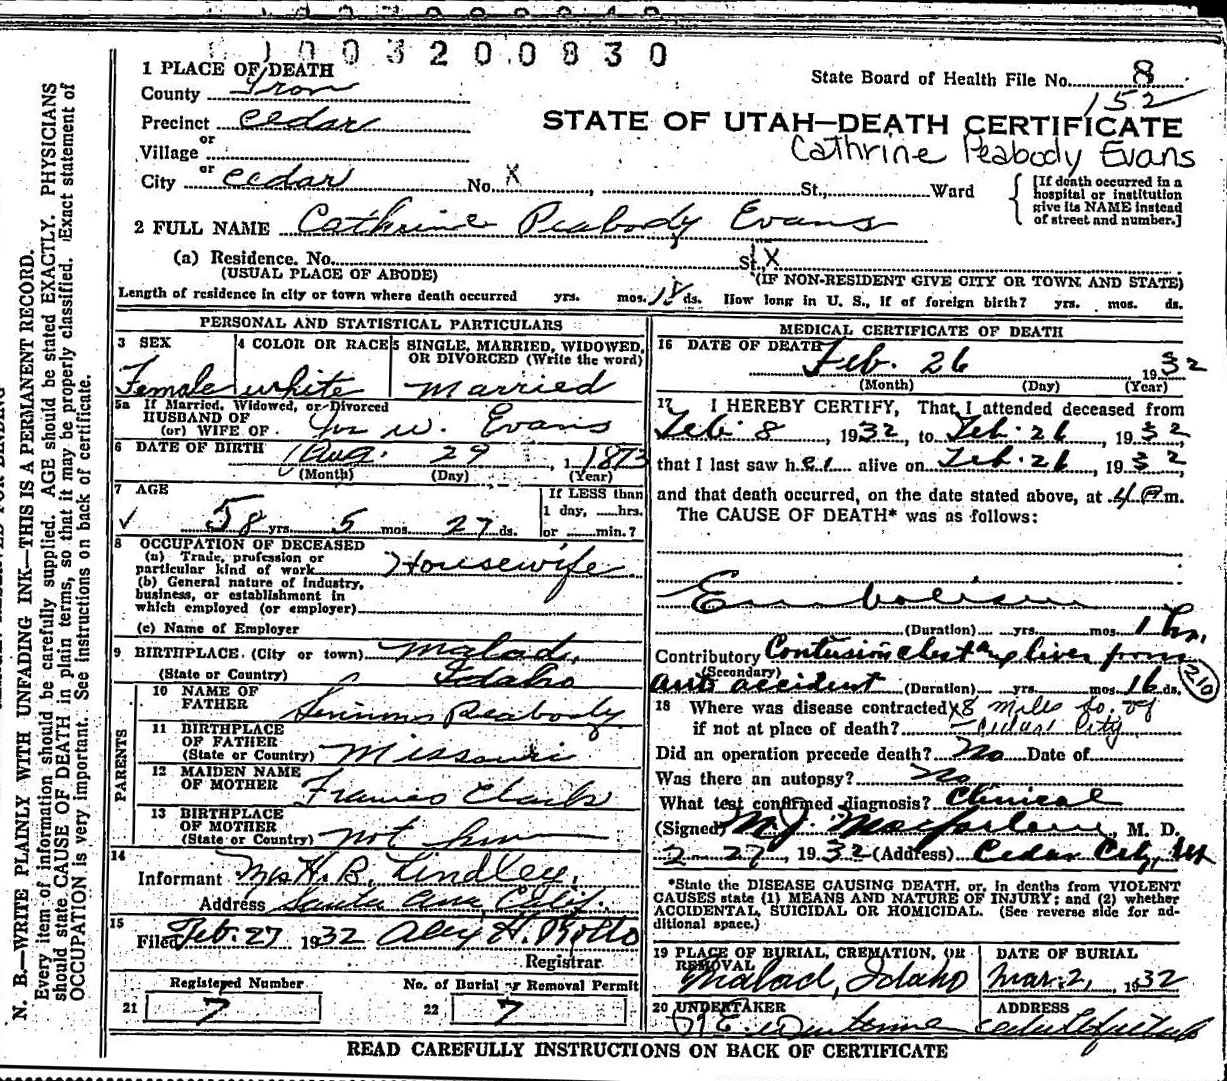 1003200830
1 PLACE OF DEATH
State Board of Health File No. 8
152
County Iron
Precinct Cedar
STATE OF UTAH—DEATH CERTIFICATE
or
Village
Cathrine Peabody Evans
City or Cedar No. X, St., Ward
[If death occurred in a hospital or institution give its NAME instead of street and number.]
2 FULL NAME Cathrine Peabody Evans
(a) Residence. No. St. X
(USUAL PLACE OF ABODE) (IF NON-RESIDENT GIVE CITY OR TOWN AND STATE)
Length of residence in city or town where death occurred yrs. mos. 18 ds. How long in U. S., if of foreign birth? yrs. mos. ds.
PERSONAL AND STATISTICAL PARTICULARS
3 SEX 4 COLOR OR RACE 5 SINGLE, MARRIED, WIDOWED, OR DIVORCED (Write the word)
Female white Married
5a If Married, Widowed, or Divorced
HUSBAND OF
(or) WIFE OF Jos W. Evans
6 DATE OF BIRTH Aug. 29, 1 1873
(Month) (Day) (Year)
7 AGE
If LESS than
1 day, hrs.
58 yrs. 5 mos. 27 ds. or min.?
8 OCCUPATION OF DECEASED
(a) Trade, profession or
particular kind of work Housewife
(b) General nature of industry,
business, or establishment in
which employed (or employer)
(c) Name of Employer
9 BIRTHPLACE. (City or town) Malad,
(State or Country) Idaho
PARENTS
10 NAME OF
FATHER Simmons Peabody
11 BIRTHPLACE
OF FATHER
(State or Country) Missouri
12 MAIDEN NAME
OF MOTHER Frances Clark
13 BIRTHPLACE
OF MOTHER
(State or Country) not kn
14
Informant Mrs H. B. Lindley,
Address Santa Ana, Calif.
15
Filed Feb. 27 1932 Alex H. Rollo
Registrar
Registered Number No. of Burial or Removal Permit
21 7 22 7
MEDICAL CERTIFICATE OF DEATH
16 DATE OF DEATH
Feb. 26 1932
(Month) (Day) (Year)
17 I HEREBY CERTIFY, That I attended deceased from
Feb. 8, 1932, to Feb. 26, 1932,
that I last saw her alive on Feb. 26, 1932,
and that death occurred, on the date stated above, at 4 m.
The CAUSE OF DEATH* was as follows:
Embolism
(Duration) yrs. mos. 1 hr.
Contributory Contusion chest and liver from
(Secondary)
auto accident (Duration) yrs. mos. 16 ds.
210
18 Where was disease contracted x8 miles So. of
if not at place of death? — Cedar City
Did an operation precede death? No Date of
Was there an autopsy? No
What test confirmed diagnosis? Clinical
(Signed) M. J. Macfarlane, M. D.
2-27, 1932 (Address) Cedar City, Ut
*State the DISEASE CAUSING DEATH, or, in deaths from VIOLENT
CAUSES state (1) MEANS AND NATURE OF INJURY; and (2) whether
ACCIDENTAL, SUICIDAL OR HOMICIDAL. (See reverse side for additional space.)
19 PLACE OF BURIAL, CREMATION, OR REMOVAL DATE OF BURIAL
Malad, Idaho Mar. 2, 1932
20 UNDERTAKER ADDRESS
READ CAREFULLY INSTRUCTIONS ON BACK OF CERTIFICATE
N. B.—WRITE PLAINLY WITH UNFADING INK—THIS IS A PERMANENT RECORD.
Every item of information should be carefully supplied. AGE should be stated EXACTLY. PHYSICIANS
should state CAUSE OF DEATH in plain terms, so that it may be properly classified. Exact statement of
OCCUPATION is very important. See instructions on back of certificate.